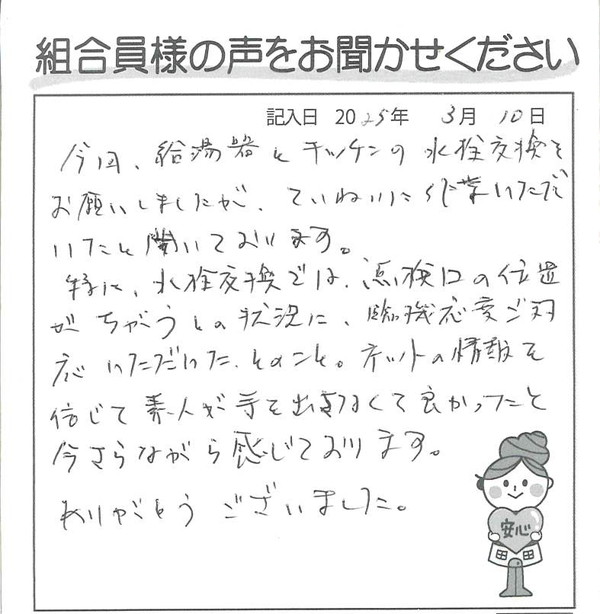 組合員様の声をお聞かせください
記入日 2025年 3月 10日
今回、給湯器とキッチンの水栓交換を
お願いしましたが、ていねいに作業いただ
いたと聞いております。
特に、水栓交換では、点検口の位置
がちがうとの状況に、臨機応変ご対
応いただいた、とのこと。ネットの情報を
信じて素人が手を出さなくて良かったと
今さらながら感じております。
ありがとうございました。
安心